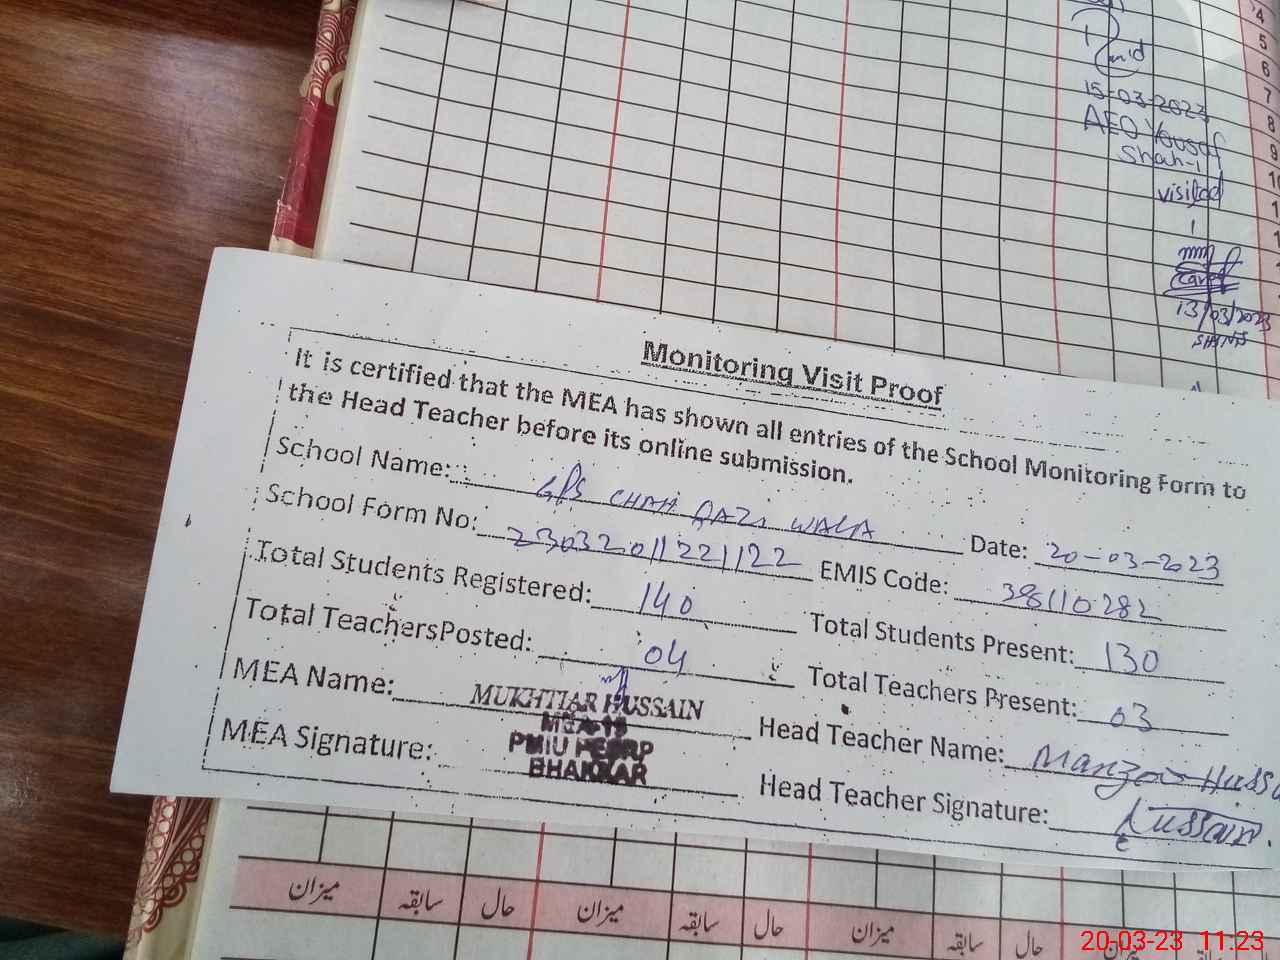 15-03-2023
AEO Yousaf
Shah-1
visited
13/03/2023
4
5
6
7
8
9
10
Monitoring Visit Proof
It is certified that the MEA has shown all entries of the School Monitoring Form to
the Head Teacher before its online submission.
School Name: GPS CHAH QAZI WALA Date: 20-03-2023
School Form No: 2303201122 1122 EMIS Code: 38110282
Total Students Registered: 140 Total Students Present: 130
Total TeachersPosted: 04 Total Teachers Present: 03
MEA Name: MUKHTIAR HUSSAIN Head Teacher Name: Manzoor Hussa
MEA-15
PMIU PESRP
BHAKKAR
MEA Signature: Head Teacher Signature: Hussain.
میزان سابقہ حال میزان سابقہ حال میزان سابقہ حال میزان
20-03-23 11:23